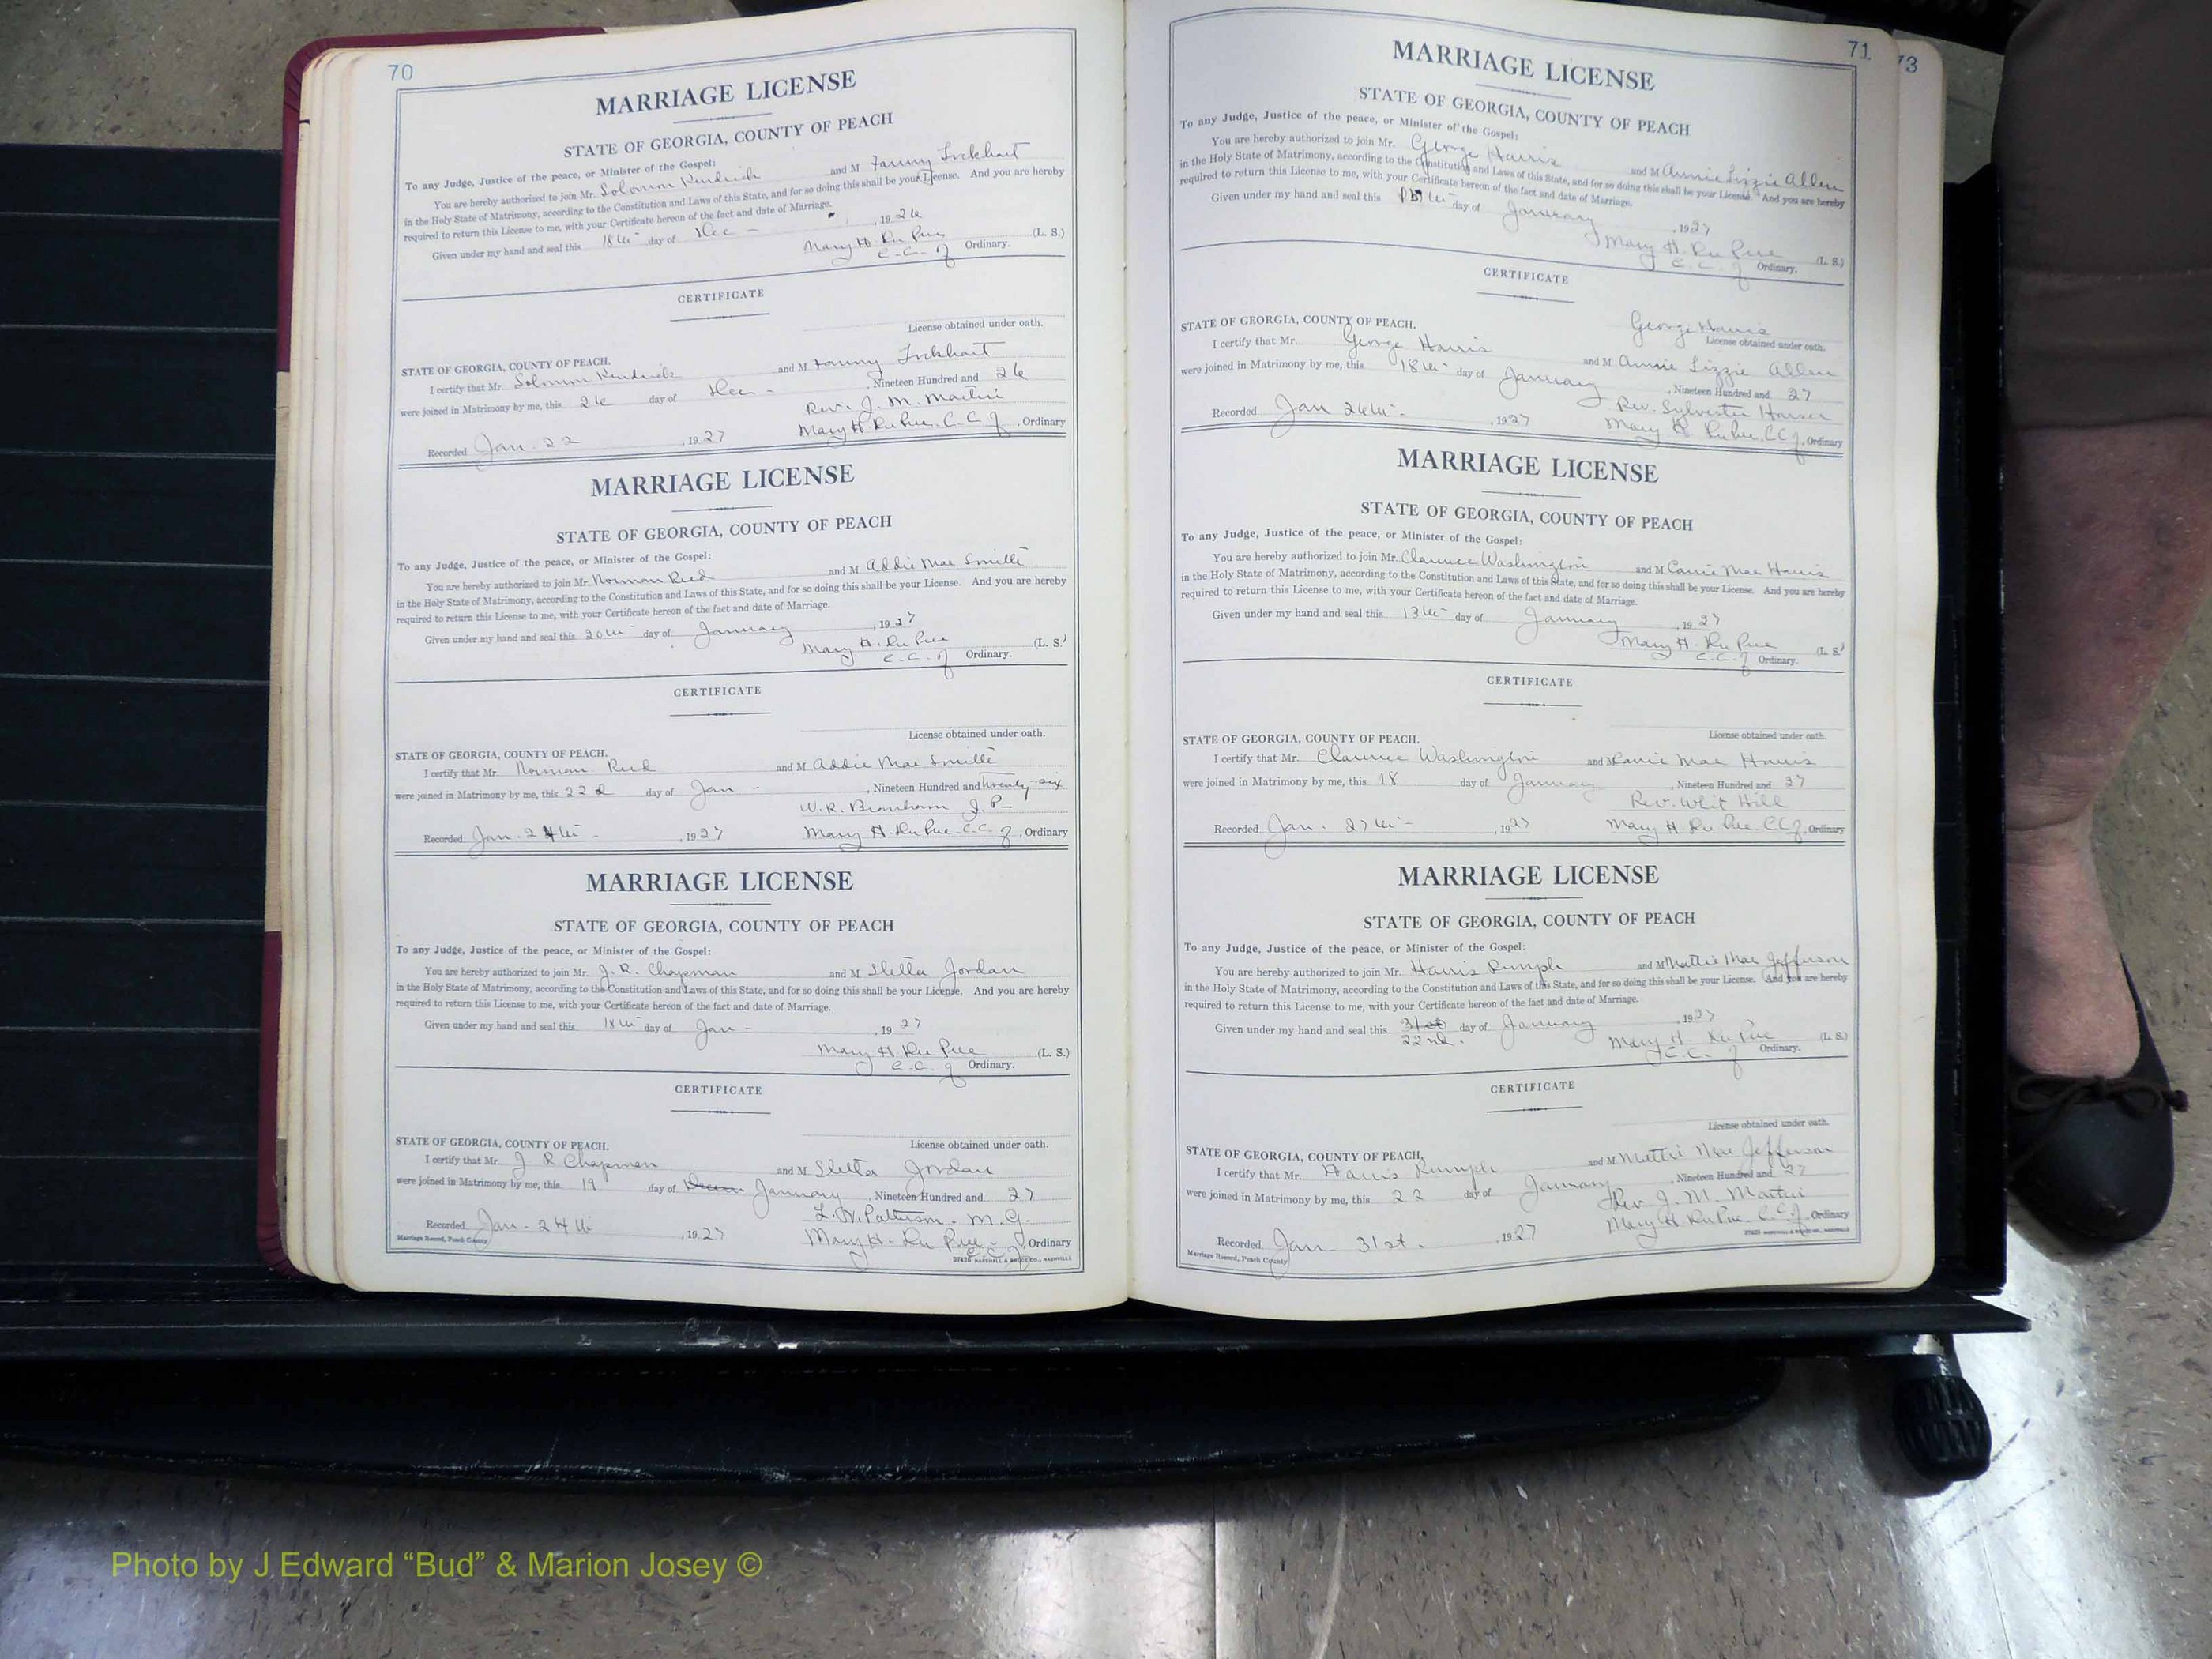 70
MARRIAGE LICENSE
STATE OF GEORGIA, COUNTY OF PEACH
To any Judge, Justice of the peace, or Minister of the Gospel:
You are hereby authorized to join Mr. Solomon Kendrick and M Fanny Lockhart
in the Holy State of Matrimony, according to the Constitution and Laws of this State, and for so doing this shall be your License. And you are hereby
required to return this License to me, with your Certificate hereon of the fact and date of Marriage.
Given under my hand and seal this 18th day of Dec - , 1926
Mary H. Du Pree (L. S.)
C.C. of Ordinary.
CERTIFICATE
License obtained under oath.
STATE OF GEORGIA, COUNTY OF PEACH.
I certify that Mr. Solomon Kendrick and M Fanny Lockhart
were joined in Matrimony by me, this 26 day of Dec - , Nineteen Hundred and 26
Rev. J. M. Martin
Recorded Jan. 22 , 1927 Mary H Du Pree, C.C. of , Ordinary
MARRIAGE LICENSE
STATE OF GEORGIA, COUNTY OF PEACH
To any Judge, Justice of the peace, or Minister of the Gospel:
You are hereby authorized to join Mr. Norman Reed and M Addie Mae Smith
in the Holy State of Matrimony, according to the Constitution and Laws of this State, and for so doing this shall be your License. And you are hereby
required to return this License to me, with your Certificate hereon of the fact and date of Marriage.
Given under my hand and seal this 20th day of January , 1927
Mary H. Du Pree (L. S.)
C.C. of Ordinary.
CERTIFICATE
License obtained under oath.
STATE OF GEORGIA, COUNTY OF PEACH.
I certify that Mr. Norman Reed and M Addie Mae Smith
were joined in Matrimony by me, this 22d day of Jan - , Nineteen Hundred and twenty-six
W. R. Branham J. P.
Recorded Jan. 24th - , 1927 Mary H. Du Pree. C.C. of , Ordinary
MARRIAGE LICENSE
STATE OF GEORGIA, COUNTY OF PEACH
To any Judge, Justice of the peace, or Minister of the Gospel:
You are hereby authorized to join Mr. J. R. Chapman and M Jordan
in the Holy State of Matrimony, according to the Constitution and Laws of this State, and for so doing this shall be your License. And you are hereby
required to return this License to me, with your Certificate hereon of the fact and date of Marriage.
Given under my hand and seal this 18th day of Jan - , 1927
Mary H. Du Pree (L. S.)
C.C. of Ordinary.
CERTIFICATE
License obtained under oath.
STATE OF GEORGIA, COUNTY OF PEACH.
I certify that Mr. J R Chapman and M Jordan
were joined in Matrimony by me, this 19 day of January , Nineteen Hundred and 27
L. W. Patterson. M.G.
Recorded Jan - 24th , 1927 Mary H. Du Pree - , Ordinary
C.C. of
Marriage Record, Peach County 27425 MARSHALL & BRUCE CO., NASHVILLE
71
MARRIAGE LICENSE
STATE OF GEORGIA, COUNTY OF PEACH
To any Judge, Justice of the peace, or Minister of the Gospel:
You are hereby authorized to join Mr. George Harris and M Annie Lizzie Allen
in the Holy State of Matrimony, according to the Constitution and Laws of this State, and for so doing this shall be your License. And you are hereby
required to return this License to me, with your Certificate hereon of the fact and date of Marriage.
Given under my hand and seal this day of January , 1927
Mary H. Du Pree (L. S.)
C.C. of Ordinary.
CERTIFICATE
George Harris
STATE OF GEORGIA, COUNTY OF PEACH. License obtained under oath.
I certify that Mr. George Harris and M Annie Lizzie Allen
were joined in Matrimony by me, this 18th day of January , Nineteen Hundred and 27
Rev. Sylvester
Recorded Jan 26th - , 1927 Mary H. Du Pree, CC of , Ordinary
MARRIAGE LICENSE
STATE OF GEORGIA, COUNTY OF PEACH
To any Judge, Justice of the peace, or Minister of the Gospel:
You are hereby authorized to join Mr. Clarence Washington and M Carrie Mae Harris
in the Holy State of Matrimony, according to the Constitution and Laws of this State, and for so doing this shall be your License. And you are hereby
required to return this License to me, with your Certificate hereon of the fact and date of Marriage.
Given under my hand and seal this 13th day of January , 1927
Mary H. Du Pree (L. S.)
C.C. of Ordinary.
CERTIFICATE
License obtained under oath.
STATE OF GEORGIA, COUNTY OF PEACH.
I certify that Mr. Clarence Washington and M Carrie Mae Harris
were joined in Matrimony by me, this 18 day of January , Nineteen Hundred and 27
Rev. Whit Hill
Recorded Jan. 27th - , 1927 Mary H. Du Pree, CC of , Ordinary
MARRIAGE LICENSE
STATE OF GEORGIA, COUNTY OF PEACH
To any Judge, Justice of the peace, or Minister of the Gospel:
You are hereby authorized to join Mr. Harris Rumph and M Mattie Mae Jefferson
in the Holy State of Matrimony, according to the Constitution and Laws of this State, and for so doing this shall be your License. And you are hereby
required to return this License to me, with your Certificate hereon of the fact and date of Marriage.
Given under my hand and seal this 31st day of January , 1927
22nd. Mary H. Du Pree (L. S.)
C.C. of Ordinary.
CERTIFICATE
License obtained under oath.
STATE OF GEORGIA, COUNTY OF PEACH.
I certify that Mr. Harris Rumph and M Mattie Mae Jefferson
were joined in Matrimony by me, this 22 day of January , Nineteen Hundred and 27
Rev. J. M. Martin
Recorded Jan - 31st. , 1927 Mary H. Du Pree C.C. of , Ordinary
Marriage Record, Peach County 27425 MARSHALL & BRUCE CO., NASHVILLE
73
Photo by J Edward “Bud” & Marion Josey ©